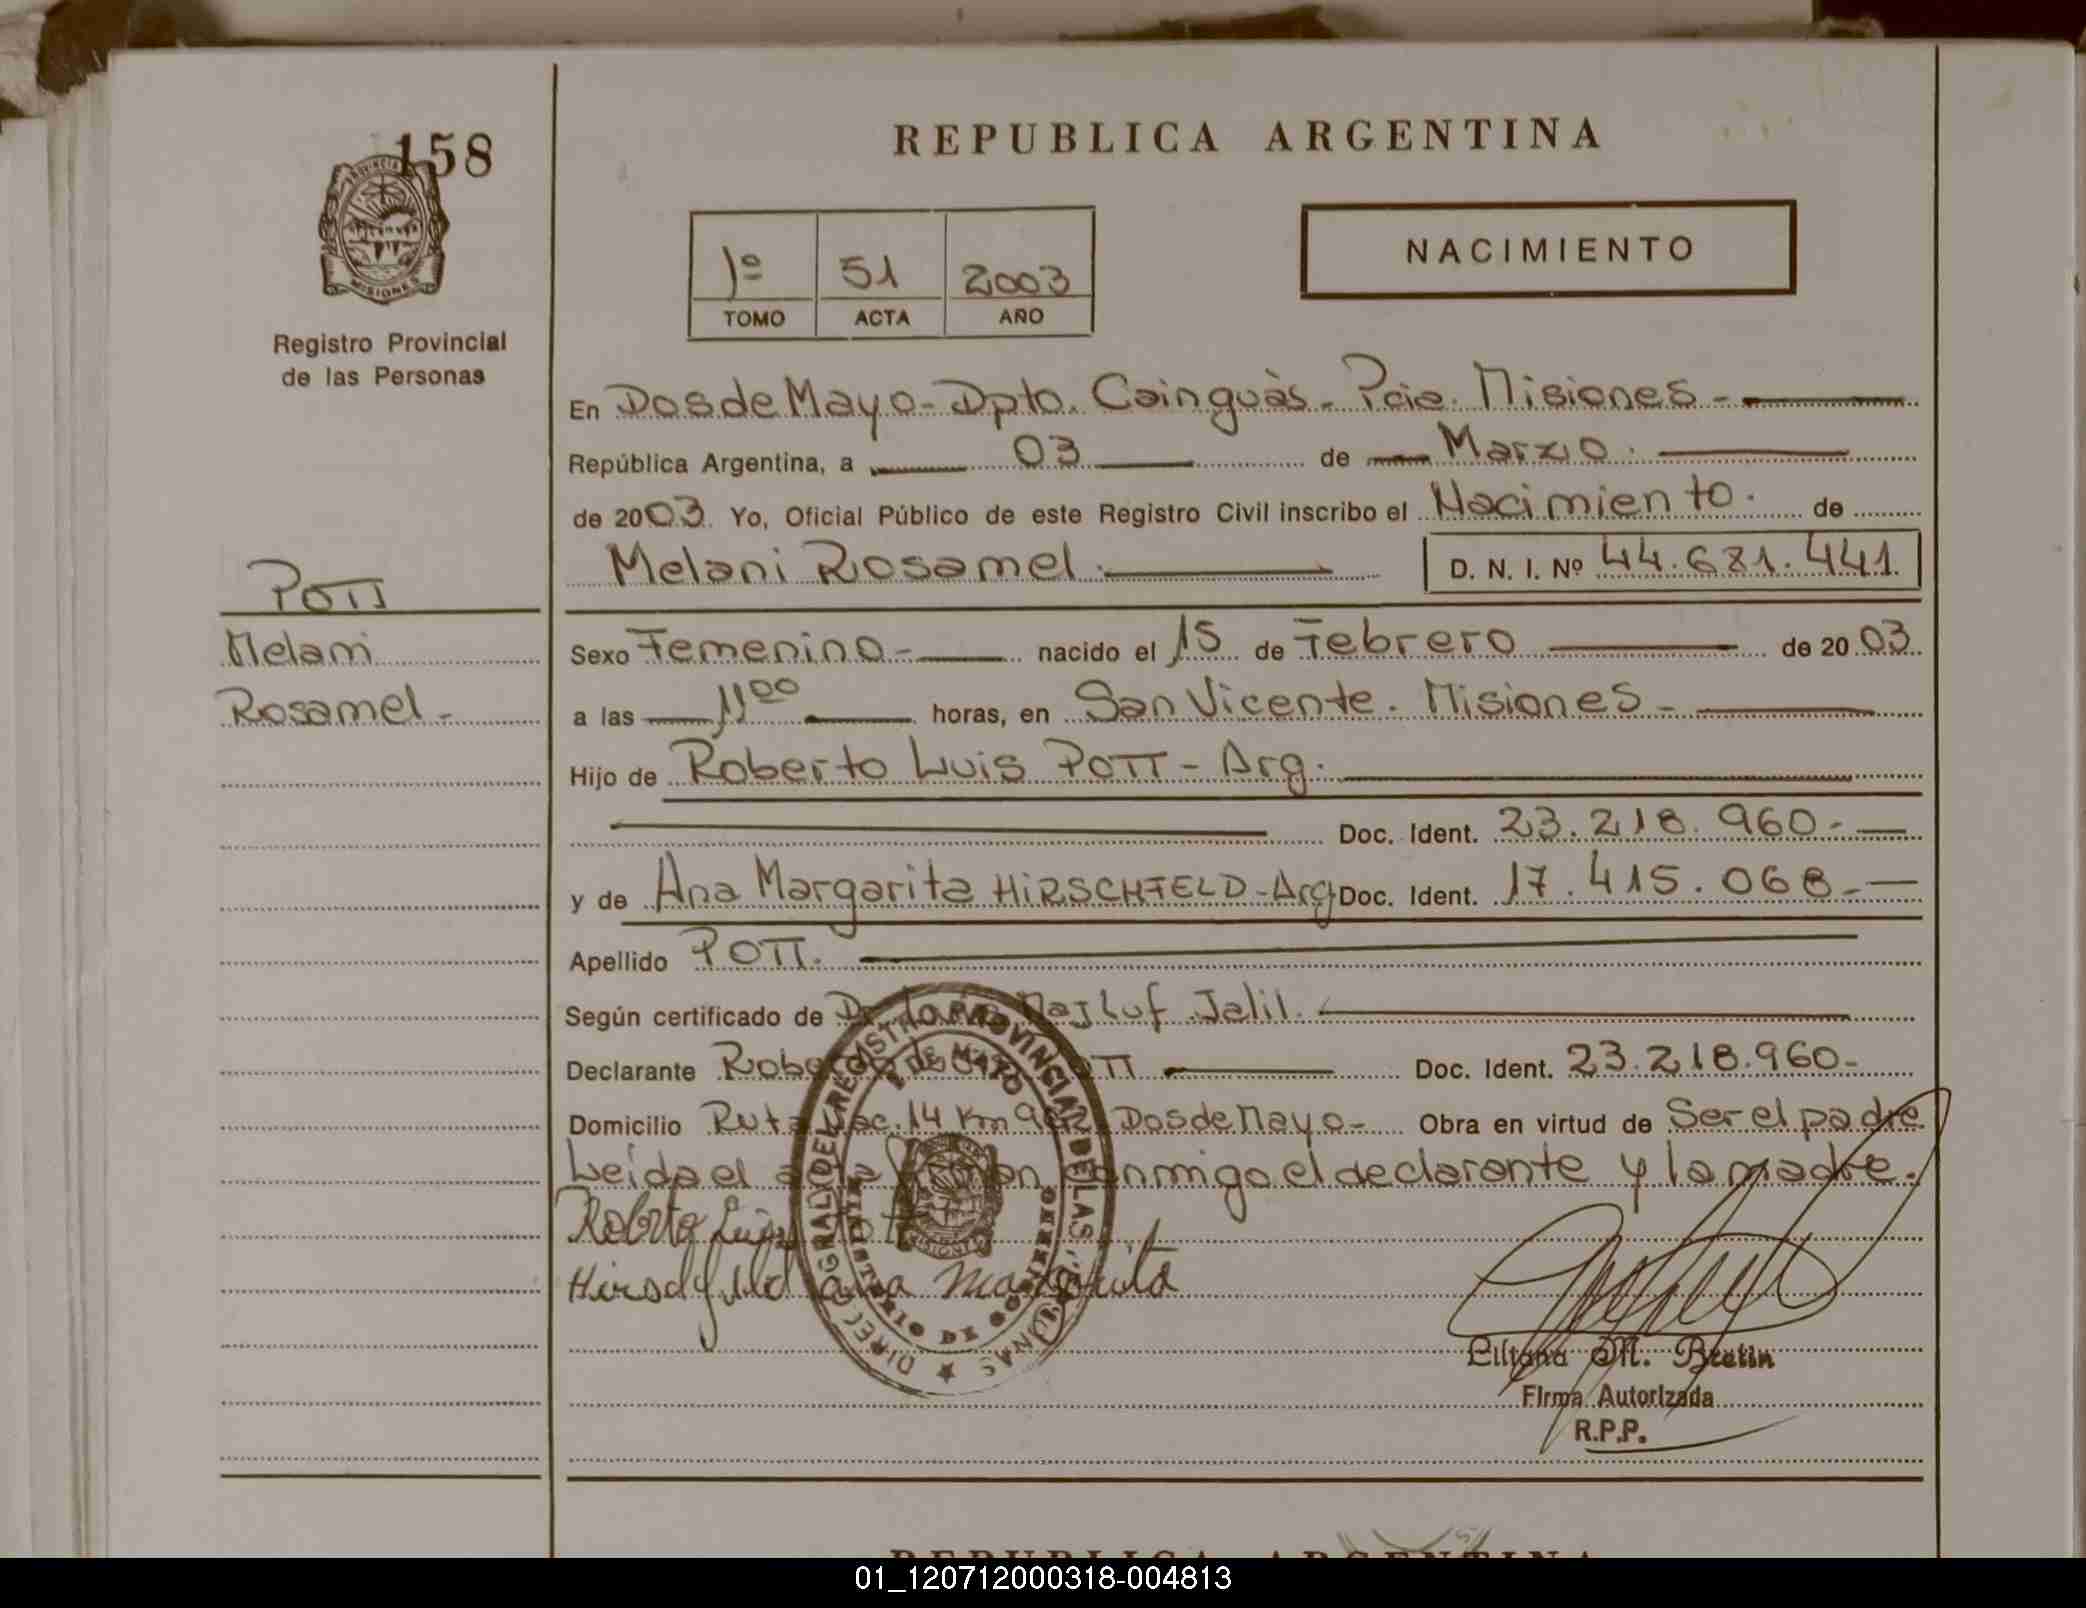 158
REPUBLICA ARGENTINA
PROVINCIA
MISIONES
Registro Provincial
de las Personas
1º 51 2003
TOMO ACTA AÑO
NACIMIENTO
En Dos de Mayo - Dpto. Cainguàs - Pcia. Misiones -
República Argentina, a 03 de Marzo.
de 2003. Yo, Oficial Público de este Registro Civil inscribo el Nacimiento. de
Melani Rosamel. D. N. I. Nº 44.681.441.
POTT
Melani
Rosamel -
Sexo Femenino - nacido el 15 de Febrero de 20 03.
a las 11 00 horas, en San Vicente. Misiones -
Hijo de Roberto Luis POTT - Arg.
Doc. Ident. 23.218.960.-
y de Ana Margarita HIRSCHFELD - Arg Doc. Ident. 17.415.068.-
Apellido POTT.
Según certificado de Majluf Jalil.
Declarante Doc. Ident. 23.218.960-
Domicilio Ruta 14 Km Dos de Mayo - Obra en virtud de Ser el padre
Leída el conmigo el declarante y la madre.
Roberto Luis Pott
Hirschfeld ana Margarita
DIREC. GRAL DEL REGISTRO PROVINCIAL DE LAS PERSONAS
DOS DE MAYO
MINISTERIO DE GOBIERNO
MISIONES
Liliana M. Bretin
Firma Autorizada
R.P.P.
REPUBLICA ARGENTINA
01_120712000318-004813